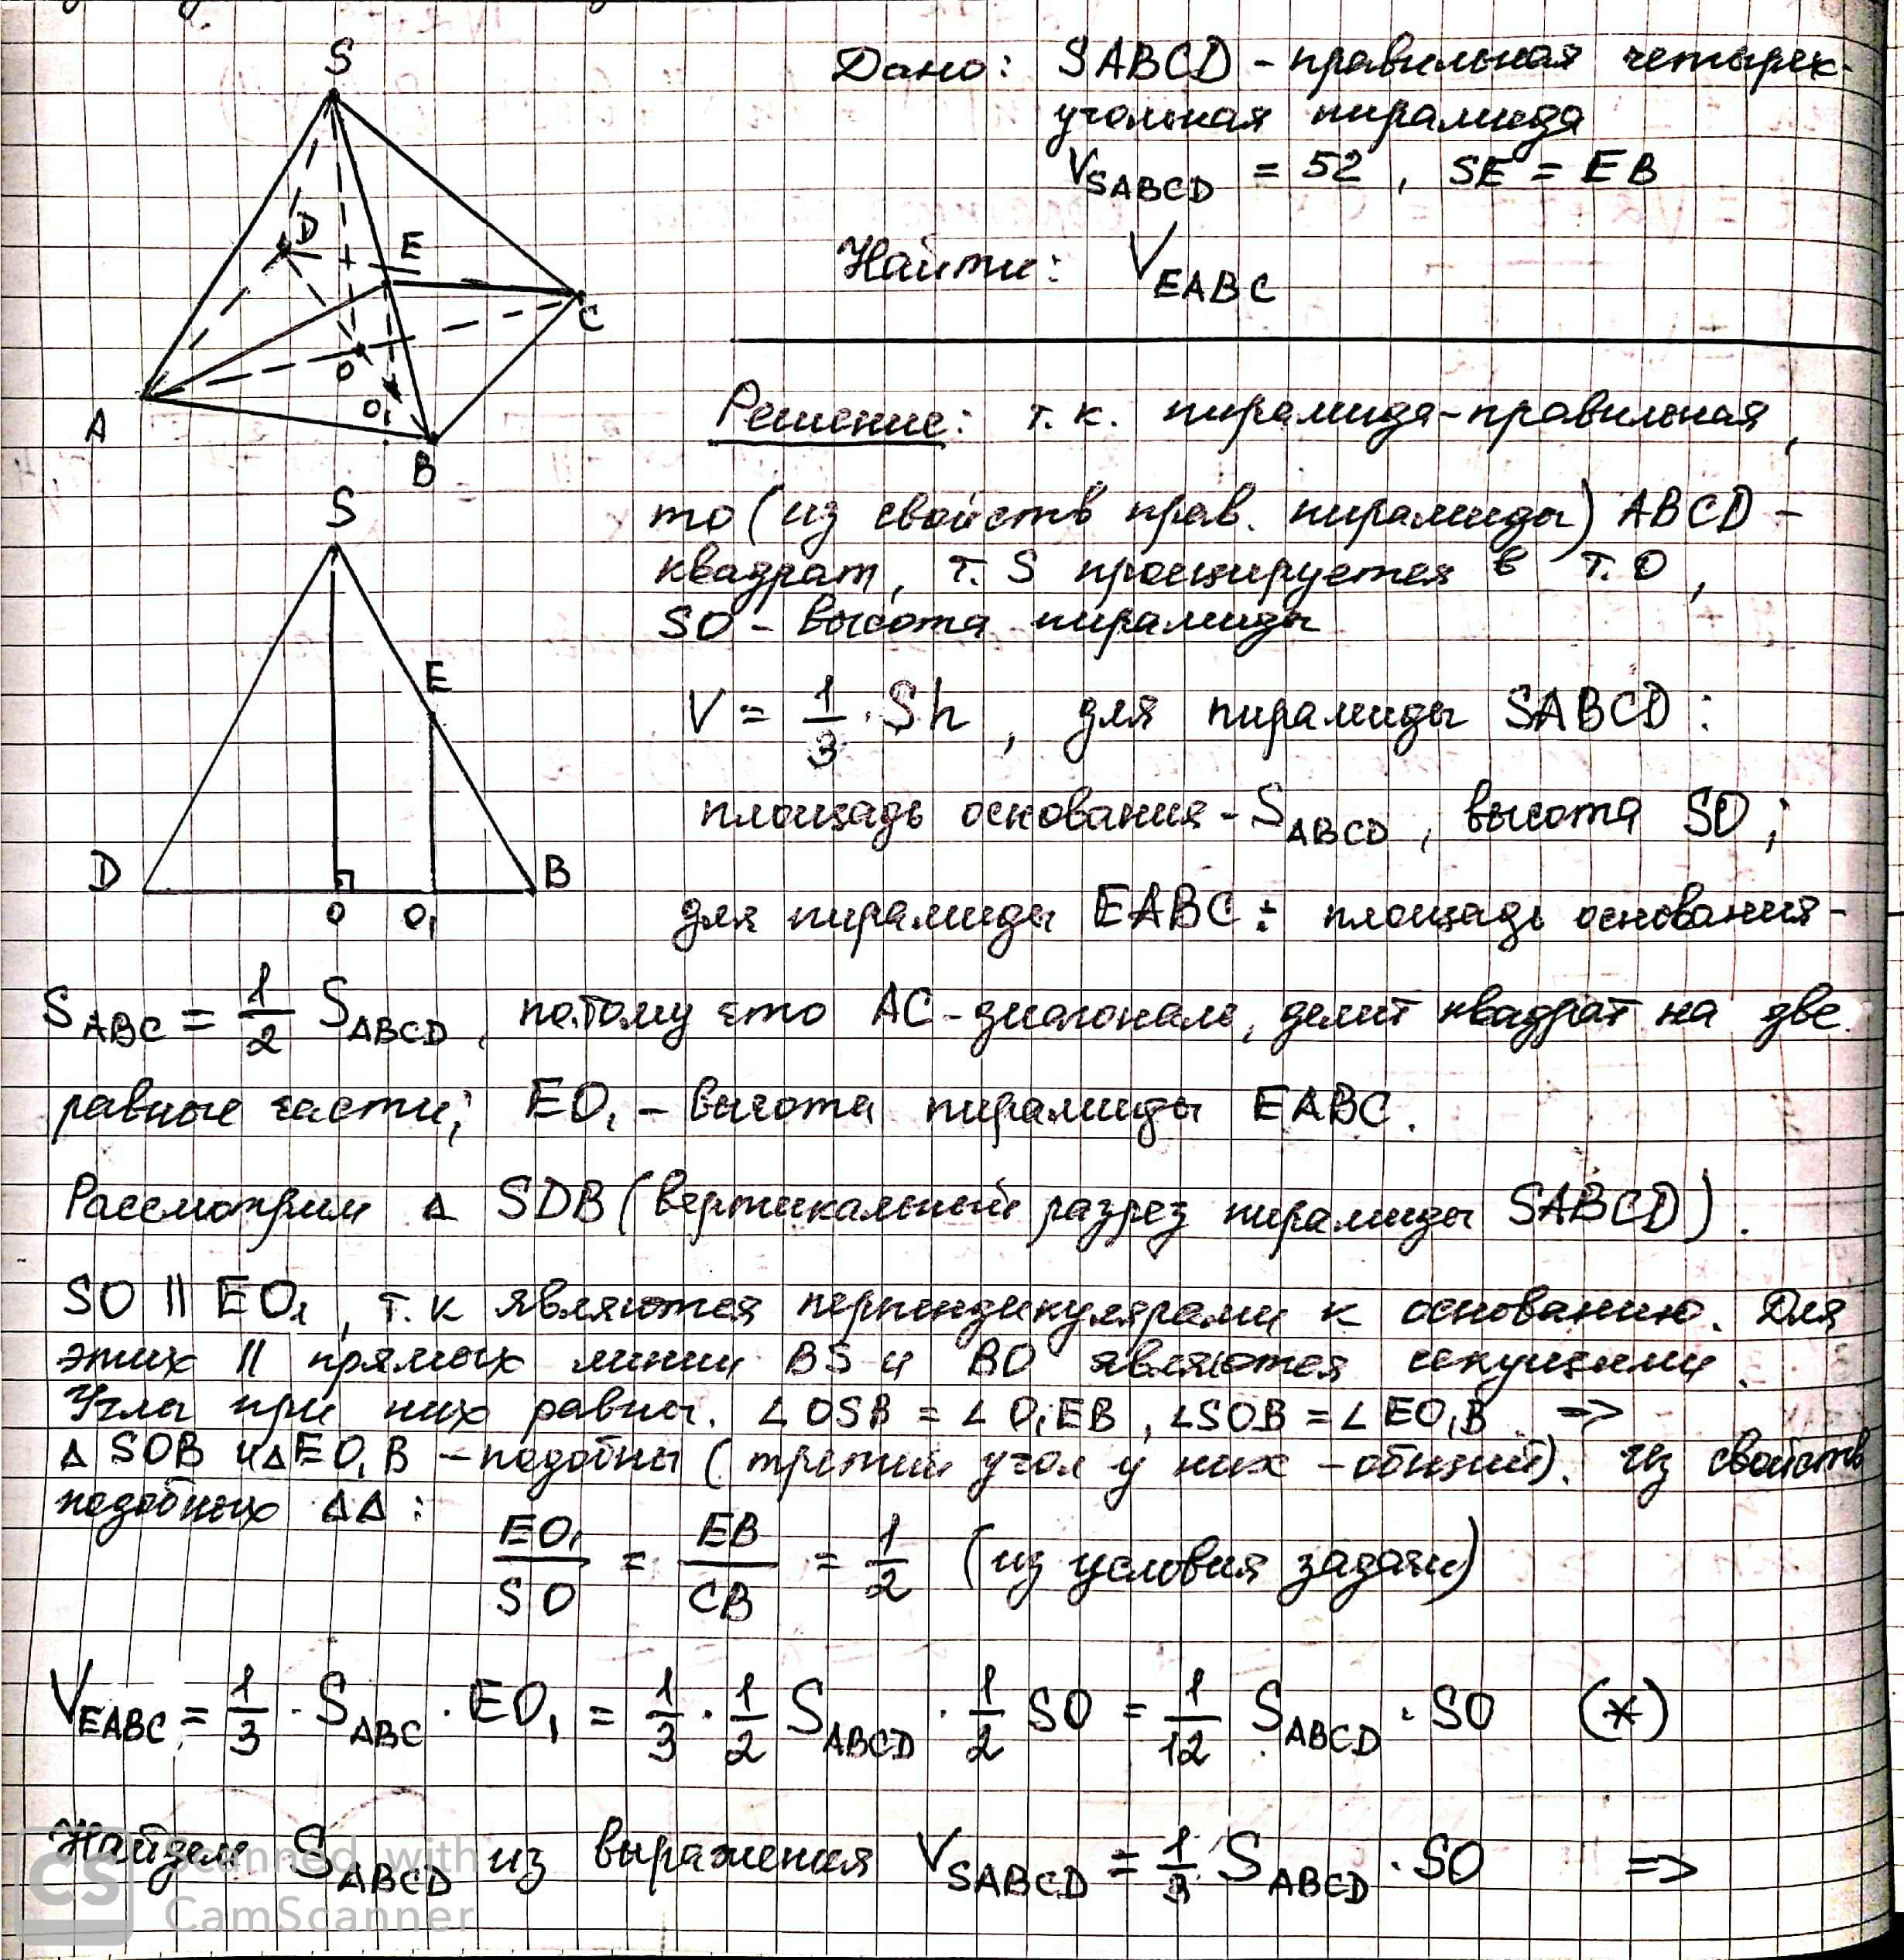 S
D
E
C
O
O₁
A
B
Дано: SABCD - правильная четырех-
угольная пирамида
V_SABCD = 52, SE = EB
Найти: V_EABC
Решение: т.к. пирамида-правильная,
то (из свойств прав. пирамиды) ABCD -
квадрат, т. S проецируется в т. O,
SO - высота пирамиды
S
E
D
B
O
O₁
V = 1/3 · Sh, для пирамиды SABCD:
площадь основания - S_ABCD, высота SO;
для пирамиды EABC: площадь основания -
S_ABC = 1/2 S_ABCD, потому что AC-диагональ, делит квадрат на две
равные части; EO₁ - высота пирамиды EABC.
Рассмотрим Δ SDB (вертикальный разрез пирамиды SABCD).
SO || EO₁, т.к являются перпендикулярами к основанию. Для
этих || прямых линии BS и BO являются секущими.
Углы при них равны. ∠OSB = ∠O₁EB, ∠SOB = ∠EO₁B =>
Δ SOB и Δ EO₁B - подобны (третий угол у них - общий). Из свойств
подобных ΔΔ:
EO₁/SO = EB/CB = 1/2 (из условия задачи)
V_EABC = 1/3 · S_ABC · EO₁ = 1/3 · 1/2 S_ABCD · 1/2 SO = 1/12 S_ABCD · SO (*)
Найдем S_ABCD из выражения V_SABCD = 1/3 S_ABCD · SO =>
CS Scanned with
CamScanner